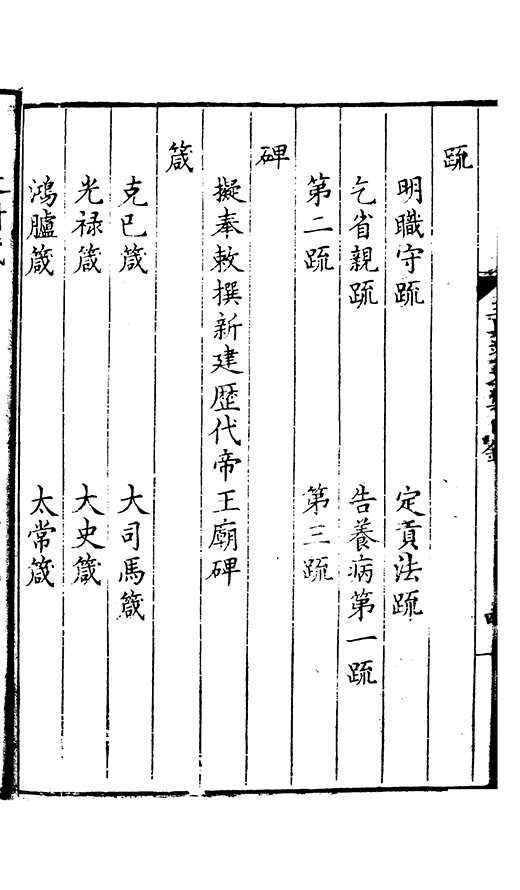 疏
明職守疏　定貢法疏
乞省親疏　告養病第一疏
第二疏　第三疏
碑
擬奉敕撰新建歷代帝王廟碑
箴
克已箴　大司馬箴
光祿箴　大史箴
鴻臚箴　太常箴